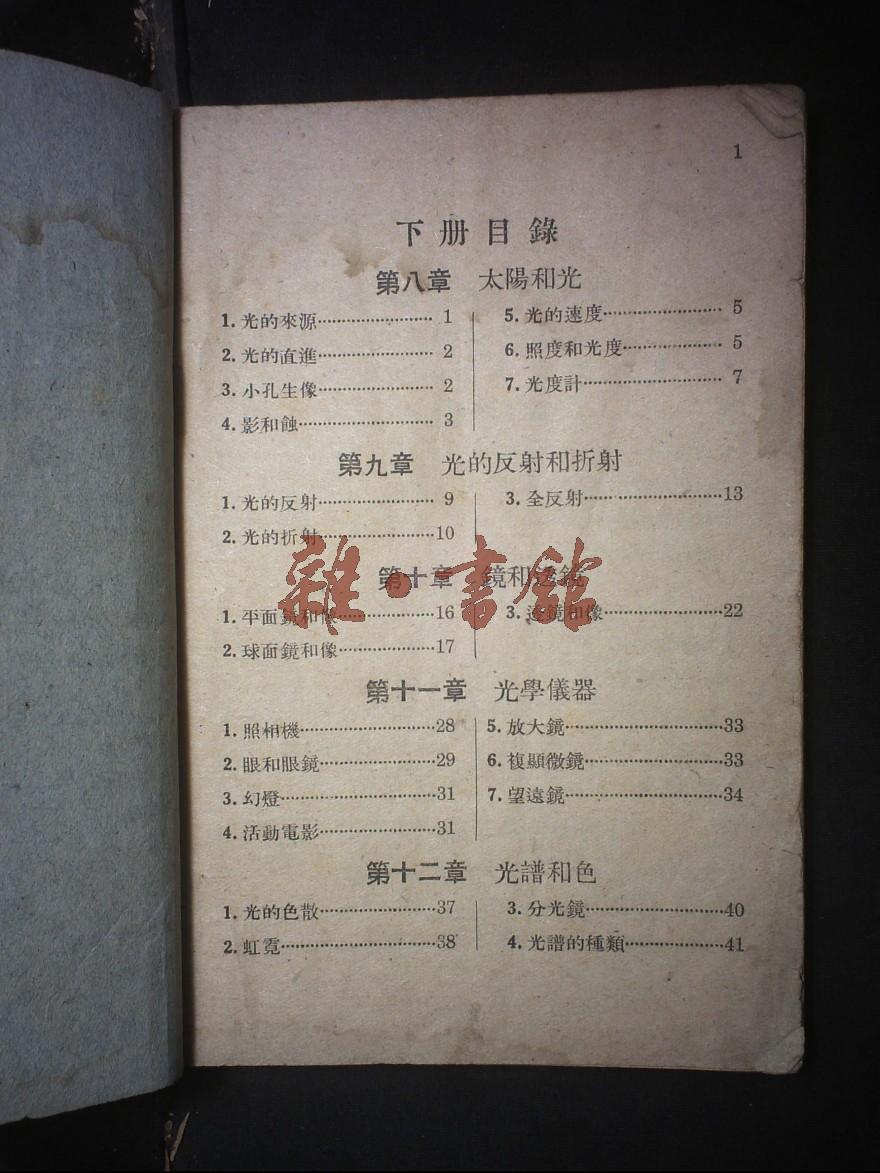 1
下册目錄
第八章 太陽和光
1. 光的來源…………………… 1
2. 光的直進…………………… 2
3. 小孔生像…………………… 2
4. 影和蝕…………………… 3
5. 光的速度…………………… 5
6. 照度和光度…………………… 5
7. 光度計…………………… 7
第九章 光的反射和折射
1. 光的反射…………………… 9
2. 光的折射……………………10
3. 全反射……………………13
第十章 鏡和透鏡
1. 平面鏡和像……………………16
2. 球面鏡和像……………………17
3. 透鏡和像……………………22
雜·書館
第十一章 光學儀器
1. 照相機……………………28
2. 眼和眼鏡……………………29
3. 幻燈……………………31
4. 活動電影……………………31
5. 放大鏡……………………33
6. 複顯微鏡……………………33
7. 望遠鏡……………………34
第十二章 光譜和色
1. 光的色散……………………37
2. 虹霓……………………38
3. 分光鏡……………………40
4. 光譜的種類……………………41